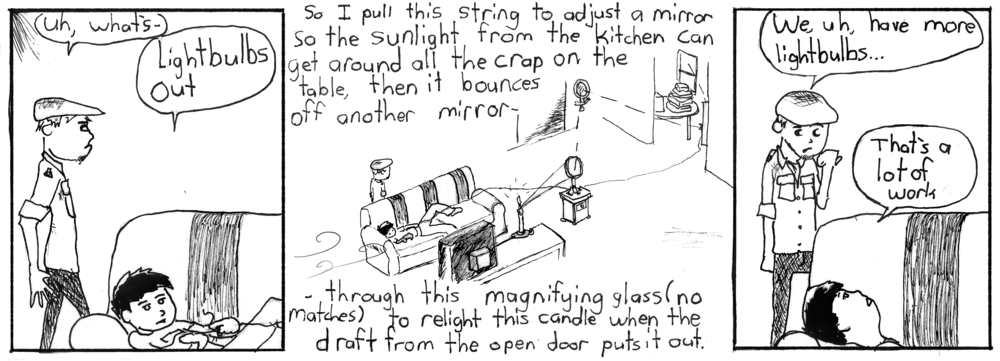 Uh, what's-
Lightbulbs
out
So I pull this string to adjust a mirror
So the sunlight from the kitchen can
get around all the crap on the
table, then it bounces
off another mirror-
- through this magnifying glass (no
matches) to relight this candle when the
draft from the open door puts it out.
We, uh, have more
lightbulbs...
That's a
lot of
work